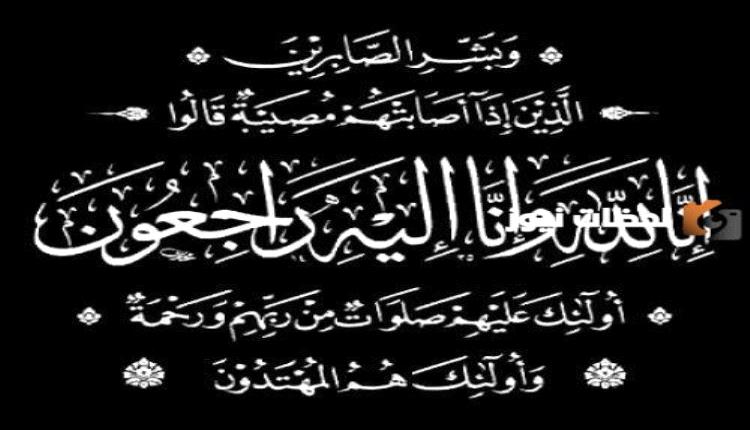 وَبَشِّرِ الصَّابِرِيْنَ
الَّذِيْنَ إِذَآ أَصَابَتْهُمْ مُصِيْبَةٌ قَالُوا
إِنَّا لِلَّهِ وَإِنَّا إِلَيْهِ رَاجِعُونَ
لحظات نيوز
أُولَٰئِكَ عَلَيْهِمْ صَلَوَاتٌ مِنْ رَبِّهِمْ وَرَحْمَةٌ
وَأُولَٰئِكَ هُمُ الْمُهْتَدُوْنَ